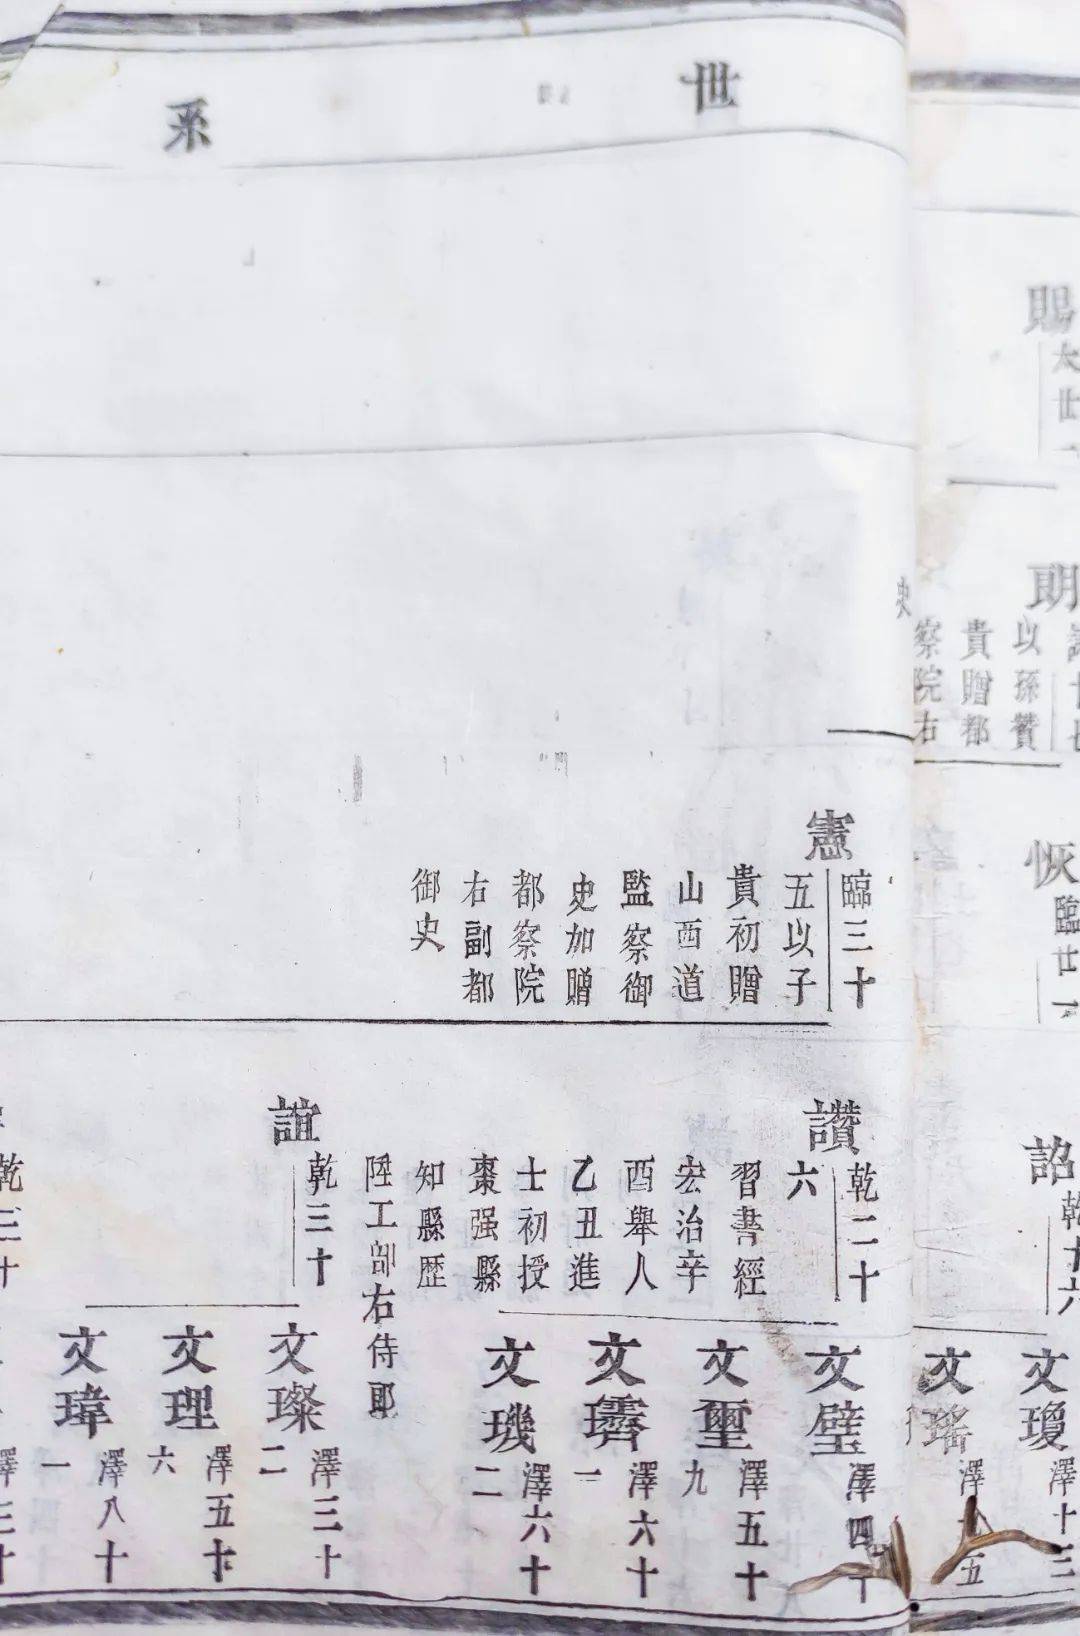 賜
大
世
朗
以孫贊
貴贈都
察院右
史
恢
臨
世
詔
乾十六
文瓊
澤十三
文瑤
澤
五
世系
憲
臨三十
五以子
貴初贈
山西道
監察御
史加贈
都察院
右副都
御史
讚
乾二十
六
習書經
宏治辛
酉舉人
乙丑進
士初授
棗强縣
知縣歷
陞工部右侍郎
文璧
澤四十
文璽
澤五十
九
文璾
澤六十
一
文璣
澤六十
二
誼
乾三十
文璨
澤三十
二
文理
澤五十
六
文瑋
澤八十
一
乾三十
澤三十